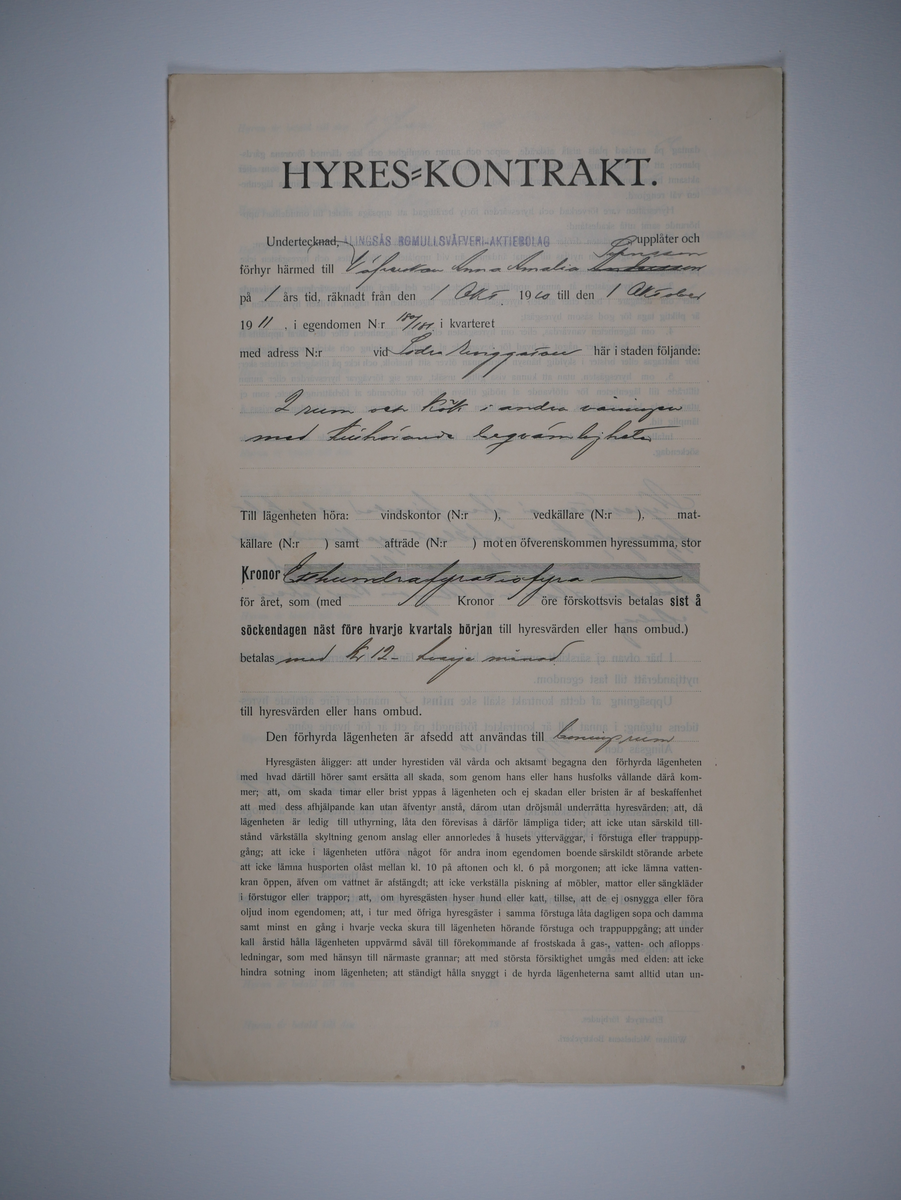 HYRES=KONTRAKT.
Undertecknad, ALINGSÅS BOMULLSVÄFVERI-AKTIEBOLAG upplåter och
förhyr härmed till Väfverskan Anna Amalia Andersson
på 1 års tid, räknadt från den 1 Okt. 1910 till den 1 Oktober
19 11, i egendomen N:r 180/181 i kvarteret
med adress N:r vid Södra Ringgatan här i staden följande:
2 rum och kök i andra våningen
med tillhörande beqvämligheter
Till lägenheten höra: vindskontor (N:r ), vedkällare (N:r ), mat-
källare (N:r ) samt afträde (N:r ) mot en öfverenskommen hyressumma, stor
Kronor Etthundrafyratiofyra
för året, som (med Kronor öre förskottsvis betalas sist å
söckendagen näst före hvarje kvartals början till hyresvärden eller hans ombud.)
betalas med Kr 12- hvarje månad
till hyresvärden eller hans ombud.
Den förhyrda lägenheten är afsedd att användas till boningsrum
Hyresgästen åligger: att under hyrestiden väl vårda och aktsamt begagna den förhyrda lägenheten
med hvad därtill hörer samt ersätta all skada, som genom hans eller hans husfolks vållande därå kom-
mer; att, om skada timar eller brist yppas å lägenheten och ej skadan eller bristen är af beskaffenhet
att med dess afhjälpande kan utan äfventyr anstå, därom utan dröjsmål underrätta hyresvärden; att, då
lägenheten är ledig till uthyrning, låta den förevisas å därför lämpliga tider; att icke utan särskild till-
stånd värkställa skyltning genom anslag eller annorledes å husets ytterväggar, i förstuga eller trappupp-
gång; att icke i lägenheten utföra något för andra inom egendomen boende särskildt störande arbete
att icke lämna husporten olåst mellan kl. 10 på aftonen och kl. 6 på morgonen; att icke lämna vatten-
kran öppen, äfven om vattnet är afstängdt; att icke verkställa piskning af möbler, mattor eller sängkläder
i förstugor eller trappor; att, om hyresgästen hyser hund eller katt, tillse, att de ej osnygga eller föra
oljud inom egendomen; att, i tur med öfriga hyresgäster i samma förstuga låta dagligen sopa och damma
samt minst en gång i hvarje vecka skura till lägenheten hörande förstuga och trappuppgång; att under
kall årstid hålla lägenheten uppvärmd såväl till förekommande af frostskada å gas-, vatten- och aflopps
ledningar, som med hänsyn till närmaste grannar; att med största försiktighet umgås med elden: att icke
hindra sotning inom lägenheten; att ständigt hålla snyggt i de hyrda lägenheterna samt alltid utan un-